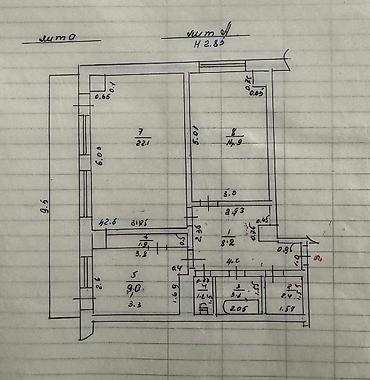 лит А
H 2.83
0.65
0.1
0.65
7
22.1
8
14.9
6.03
5.07
9.6
3.0
42.6
2.83
0.45
1
8.2
0.76
2.96
4
1.2
3.2
0.5
0.96
1.0
4.2
5
9.0
0.4
2.6
3.3
1.69
3
3.1
2.05
2
2.4
1.57